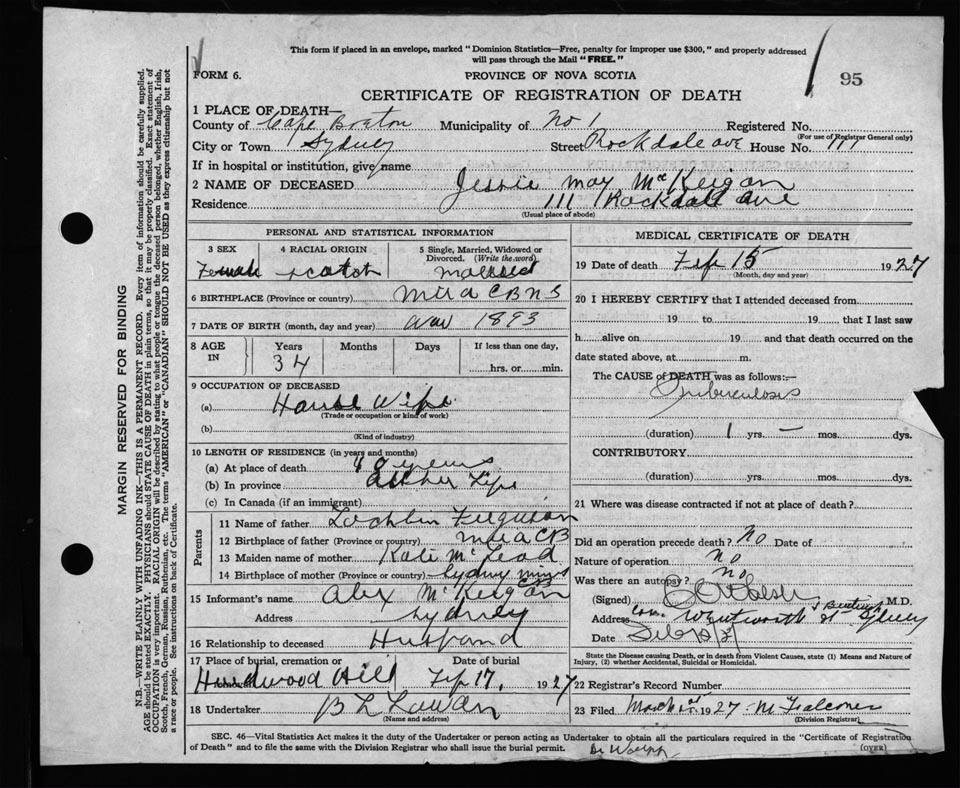 This form if placed in an envelope, marked "Dominion Statistics—Free, penalty for improper use $300," and properly addressed
will pass through the Mail "FREE."
FORM 6.
PROVINCE OF NOVA SCOTIA
95
CERTIFICATE OF REGISTRATION OF DEATH
1 PLACE OF DEATH—
County of Cape Breton Municipality of No 1 Registered No.
(For use of Registrar General only)
City or Town Sydney Street Rockdale ave House No. 111
If in hospital or institution, give name
2 NAME OF DECEASED Jessie may McKeigan
Residence 111 Rockdale ave
(Usual place of abode)
PERSONAL AND STATISTICAL INFORMATION
3 SEX 4 RACIAL ORIGIN 5 Single, Married, Widowed or Divorced. (Write the word)
Female scotch married
6 BIRTHPLACE (Province or country) Mira CB NS
7 DATE OF BIRTH (month, day and year) 1893
8 AGE IN Years Months Days If less than one day,
34 hrs. or min.
9 OCCUPATION OF DECEASED
(a) House Wife
(Trade or occupation or kind of work)
(b)
(Kind of industry)
10 LENGTH OF RESIDENCE (in years and months)
(a) At place of death years
(b) In province all her Life
(c) In Canada (if an immigrant)
Parents
11 Name of father Lochlin Ferguson
12 Birthplace of father (Province or country) Mira CB
13 Maiden name of mother Kate McLeod
14 Birthplace of mother (Province or country) Sydney mines CB
15 Informant's name Alex McKeigan
Address Sydney
16 Relationship to deceased Husband
17 Place of burial, cremation or Date of burial
Hardwood Hill Feb 17, 1927
18 Undertaker B L
(Name and address)
MEDICAL CERTIFICATE OF DEATH
19 Date of death Feb 15 1927
(Month, day and year)
20 I HEREBY CERTIFY that I attended deceased from
19 to 19 that I last saw
h alive on 19 and that death occurred on the
date stated above, at m.
The CAUSE of DEATH was as follows:—
Tuberculosis
(duration) 1 yrs. — mos. dys.
CONTRIBUTORY
(duration) yrs. mos. dys.
21 Where was disease contracted if not at place of death?
Did an operation precede death? No Date of
Nature of operation no
Was there an autopsy? no
(Signed) M.D.
Address Cor. Wentworth & Sydney
Date
State the Disease causing Death, or in death from Violent Causes, state (1) Means and Nature of
Injury, (2) whether Accidental, Suicidal or Homicidal.
22 Registrar's Record Number
23 Filed March 1927 M Falconer
(Division Registrar)
SEC. 46—Vital Statistics Act makes it the duty of the Undertaker or person acting as Undertaker to obtain all the particulars required in the "Certificate of Registration
of Death" and to file the same with the Division Registrar who shall issue the burial permit.
(OVER)
MARGIN RESERVED FOR BINDING
N.B.—WRITE PLAINLY WITH UNFADING INK—THIS IS A PERMANENT RECORD. Every item of information should be carefully supplied.
AGE should be stated EXACTLY. PHYSICIANS should STATE CAUSE OF DEATH in plain terms, so that it may be properly classified. Exact statement of
OCCUPATION is very important. RACIAL ORIGIN will be described by stating to what people or tongue the deceased person belonged, whether English, Irish,
Scotch, French, German, Russian, Ruthenian, etc. The terms "AMERICAN" or "CANADIAN" SHOULD NOT BE USED as they express citizenship but not
a race or people. See instructions on back of Certificate.